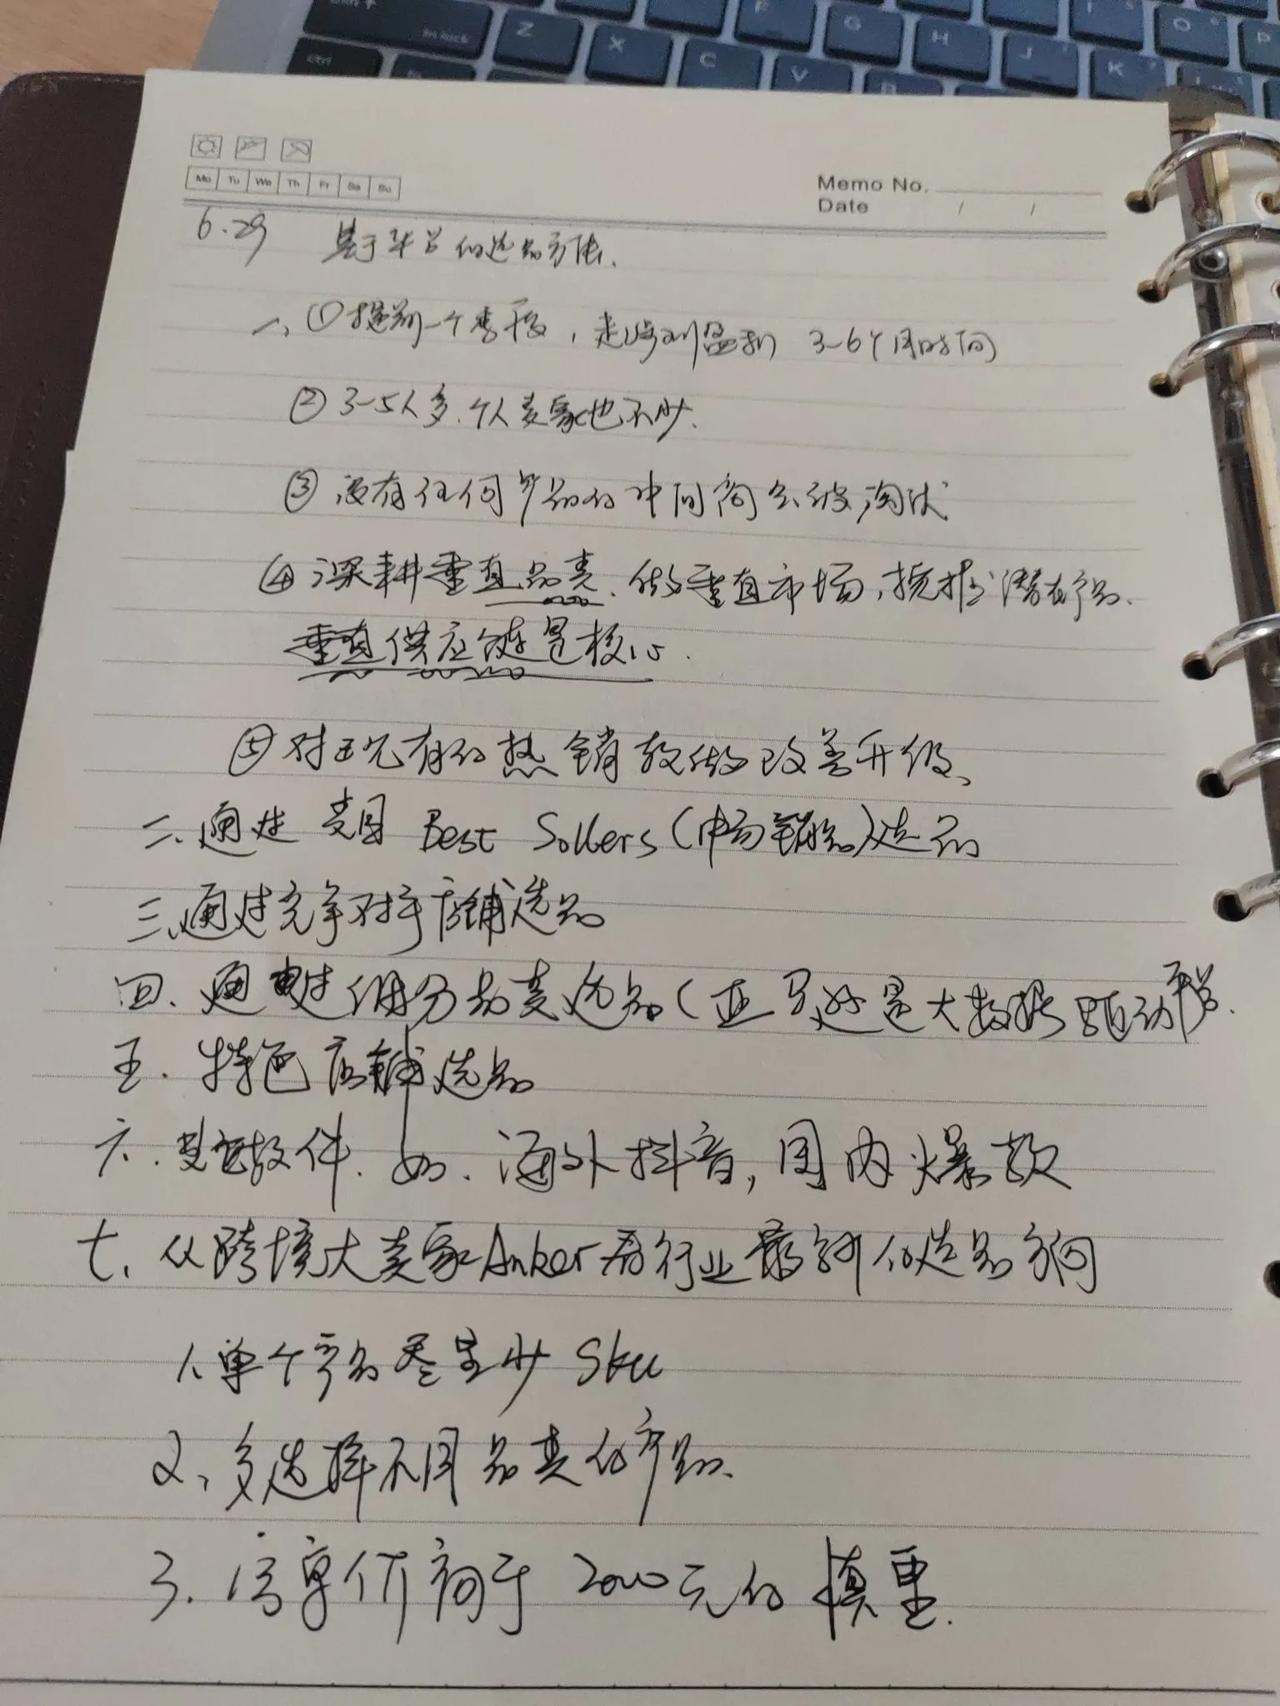 fn lock
Z
X
C
V
F
G
H
J
K
I
O
P
ctrl
Mo Tu We Th Fr Sa Su
Memo No.
Date / /
6.29 基于平台的选品方法.
一、①提前一个季度,走海到盈利 3-6个月时间
②3-5人多.个人卖家也不少.
③没有任何产品的中间商会被淘汰
④深耕垂直品类.做垂直市场,挖掘潜在产品.
垂直供应链是核心.
⑤对现有的热销款做改善升级、
二、通过美国 Best Sellers(市场销品)选品
三、通过竞争对手店铺选品
四、通过细分品类选品(亚马逊是大数据驱动平台.
五. 特色店铺选品
六.其它软件.如.海外抖音,国内爆款
七、从跨境大卖家Anker看行业最新的选品方向
1、单个产品尽量少 Sku
2、多选择不同品类的产品.
3. 客单价高于 2000元的慎重.